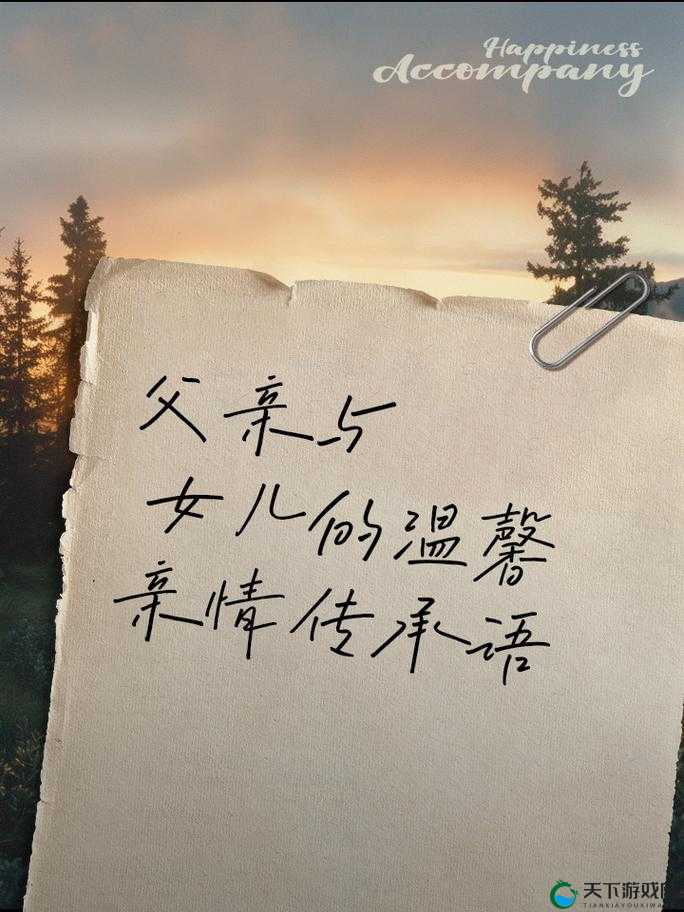 Happiness
Accompany
父亲与
女儿的温馨
亲情传承语
天下游戏